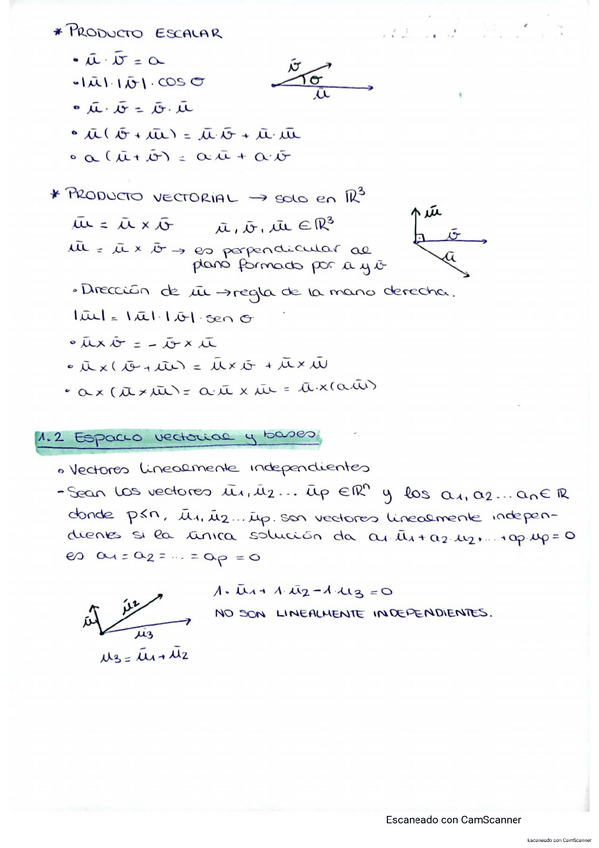 * PRODUCTO ESCALAR
• ū · v̄ = a
v̄
• |ū| · |v̄| · cos σ
σ
ū
• ū · v̄ = v̄ · ū
• ū (v̄ + w̄) = ū · v̄ + ū · w̄
• a (ū + v̄) = a ū + a · v̄
* PRODUCTO VECTORIAL → solo en ℝ³
w̄
w̄ = ū × v̄ ū, v̄, w̄ ∈ ℝ³
v̄
w̄ = ū × v̄ → es perpendicular al
ū
plano formado por ū y v̄
• Dirección de w̄ → regla de la mano derecha.
|w̄| = |ū| · |v̄| · sen σ
• ū × v̄ = - v̄ × ū
• ū × (v̄ + w̄) = ū × v̄ + ū × w̄
• a × (ū × w̄) = a · ū × w̄ = ū × (a w̄)
1.2 Espacio vectorial y bases
• Vectores linealmente independientes
- Sean los vectores ū1, ū2 ... ūp ∈ ℝⁿ y los a1, a2 ... an ∈ ℝ
donde p≤n, ū1, ū2 ... ūp. son vectores linealmente indepen-
dientes si la única solución da a1 · ū1 + a2 · u2, ... + ap · up = 0
es a1 = a2 = ... = ap = 0
1 · ū1 + 1 · ū2 - 1 · u3 = 0
ū2
ū1
NO SON LINEALMENTE INDEPENDIENTES.
ū3
u3 = ū1 + ū2
Escaneado con CamScanner
Escaneado con CamScanner